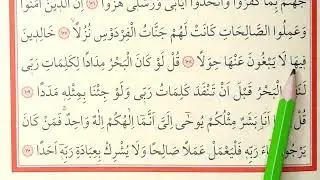 جَهَنَّمُ بِمَا كَفَرُوا وَاتَّخَذُوا اٰيَاتٖى وَرُسُلٖى هُزُوًا ﴿١٠٦﴾ اِنَّ الَّذٖينَ اٰمَنُوا
وَعَمِلُوا الصَّالِحَاتِ كَانَتْ لَهُمْ جَنَّاتُ الْفِرْدَوْسِ نُزُلًا ﴿١٠٧﴾ خَالِدٖينَ
فٖيهَا لَا يَبْغُونَ عَنْهَا حِوَلًا ﴿١٠٨﴾ قُلْ لَوْ كَانَ الْبَحْرُ مِدَادًا لِكَلِمَاتِ رَبّٖى
الْبَحْرُ قَبْلَ اَنْ تَنْفَدَ كَلِمَاتُ رَبّٖى وَلَوْ جِئْنَا بِمِثْلِهٖ مَدَدًا ﴿١٠٩﴾
اَنَا۬ بَشَرٌ مِثْلُكُمْ يُوحٰٓى اِلَىَّ اَنَّمَٓا اِلٰهُكُمْ اِلٰهٌ وَاحِدٌ فَمَنْ كَانَ
يَرْجُوا رَبِّهٖ فَلْيَعْمَلْ عَمَلًا صَالِحًا وَلَا يُشْرِكْ بِعِبَادَةِ رَبِّهٖٓ اَحَدًا ﴿١١٠﴾